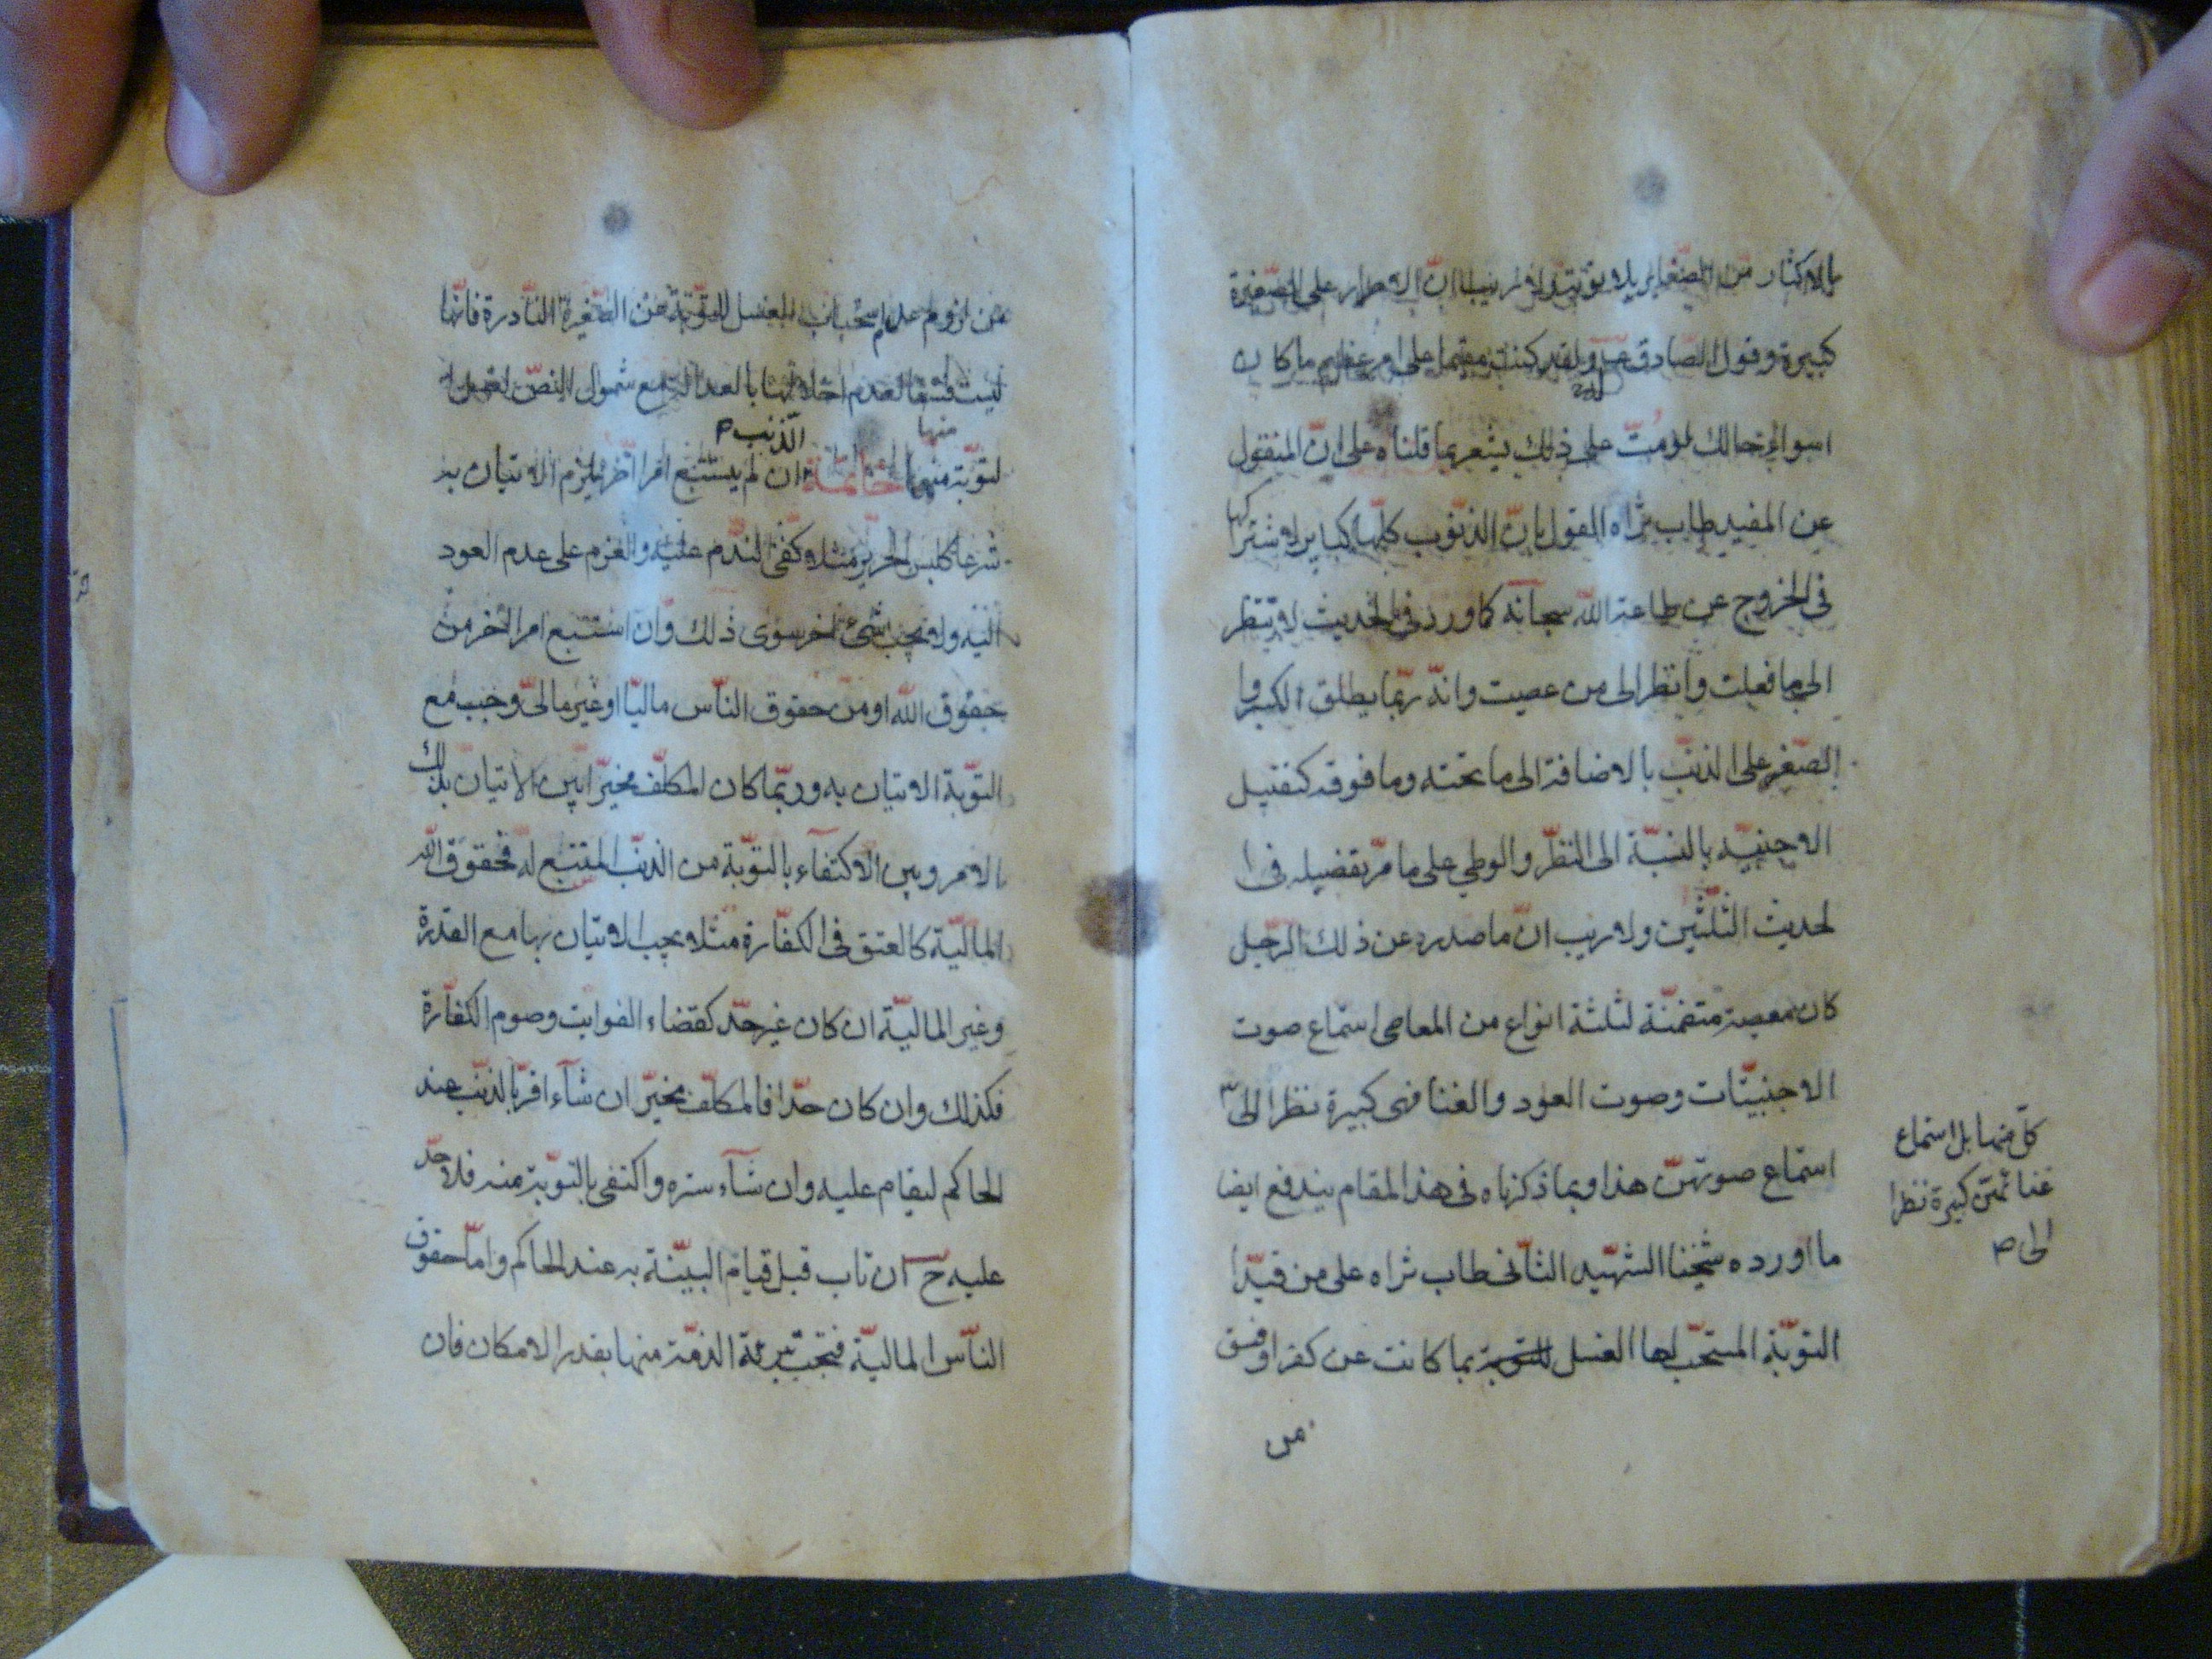 بالاكثار من الصغاير بلا توبة ولا ريب ان الاصرار على الصغيرة
كبيرة وقول الصادق ع ولقد كنت مقيما على امر عظيم ما كان
اسوأ حالك لو مت على ذلك يشعر بما قلناه على ان المنقول
عن المفيد طاب ثراه القول بان الذنوب كلها كباير لاشتراكها
فى الخروج عن طاعة الله سبحانه كما ورد فى الحديث لا تنظر
الى ما فعلت وانظر الى من عصيت وانه ربما يطلق الكبر و
الصغر على الذنب بالاضافة الى ما تحته وما فوقه كتقبيل
الاجنبية بالنسبة الى النظر والوطي على ما مر تفصيله فى ا
لحديث الثلثين ولا ريب ان ما صدر عن ذلك الرجل
كان معصية متضمنة لثلثة انواع من المعاصى استماع صوت
الاجنبيات وصوت العود والغنا فهى كبيرة نظرا الى
كل منها بل استماع
غنائهن كبيرة نظرا
الى ص
استماع صوتهن هذا وبما ذكرناه فى هذا المقام يندفع ايضا
ما اورده شيخنا الشهيد الثانى طاب ثراه على من قيد
التوبة المستحب لها الغسل للتوبة بما كانت عن كفر او فسق
من
من لزوم عدم استحباب الغسل للتوبة عن الصغيرة النادرة فانها
ليست فسقا لعدم اخلالها بالعدالة مع شمول النص
منها
الذنب م
لتوبة منها خاتمة ان لم يستتبع امرا اخر يلزم الاتيان به
شرعا كلبس الحرير مثلا كفى الندم عليه والعزم على عدم العود
اليه ولا يجب شىء اخر سوى ذلك وان استتبع امرا اخر من
حقوق الله او من حقوق الناس ماليا او غير مالى وجب مع
التوبة الاتيان به وربما كان المكلف مخيرا بين الاتيان بذلك
الامر وبين الاكتفاء بالتوبة من الذنب المستتبع له فحقوق الله
المالية كالعتق فى الكفارة مثلا يجب الاتيان بها مع القدرة
وغير المالية ان كان غير حد كقضاء الفوايت وصوم الكفارة
فكذلك وان كان حدا فالمكلف مخير ان شآء اقر بالذنب عند
الحاكم ليقام عليه وان شآء ستره واكتفى بالتوبة منه فلا حد
عليه ح ان تاب قبل قيام البينة به عند الحاكم واما حقوق
الناس المالية فتجب تبرئة الذمة منها بقدر الامكان فان